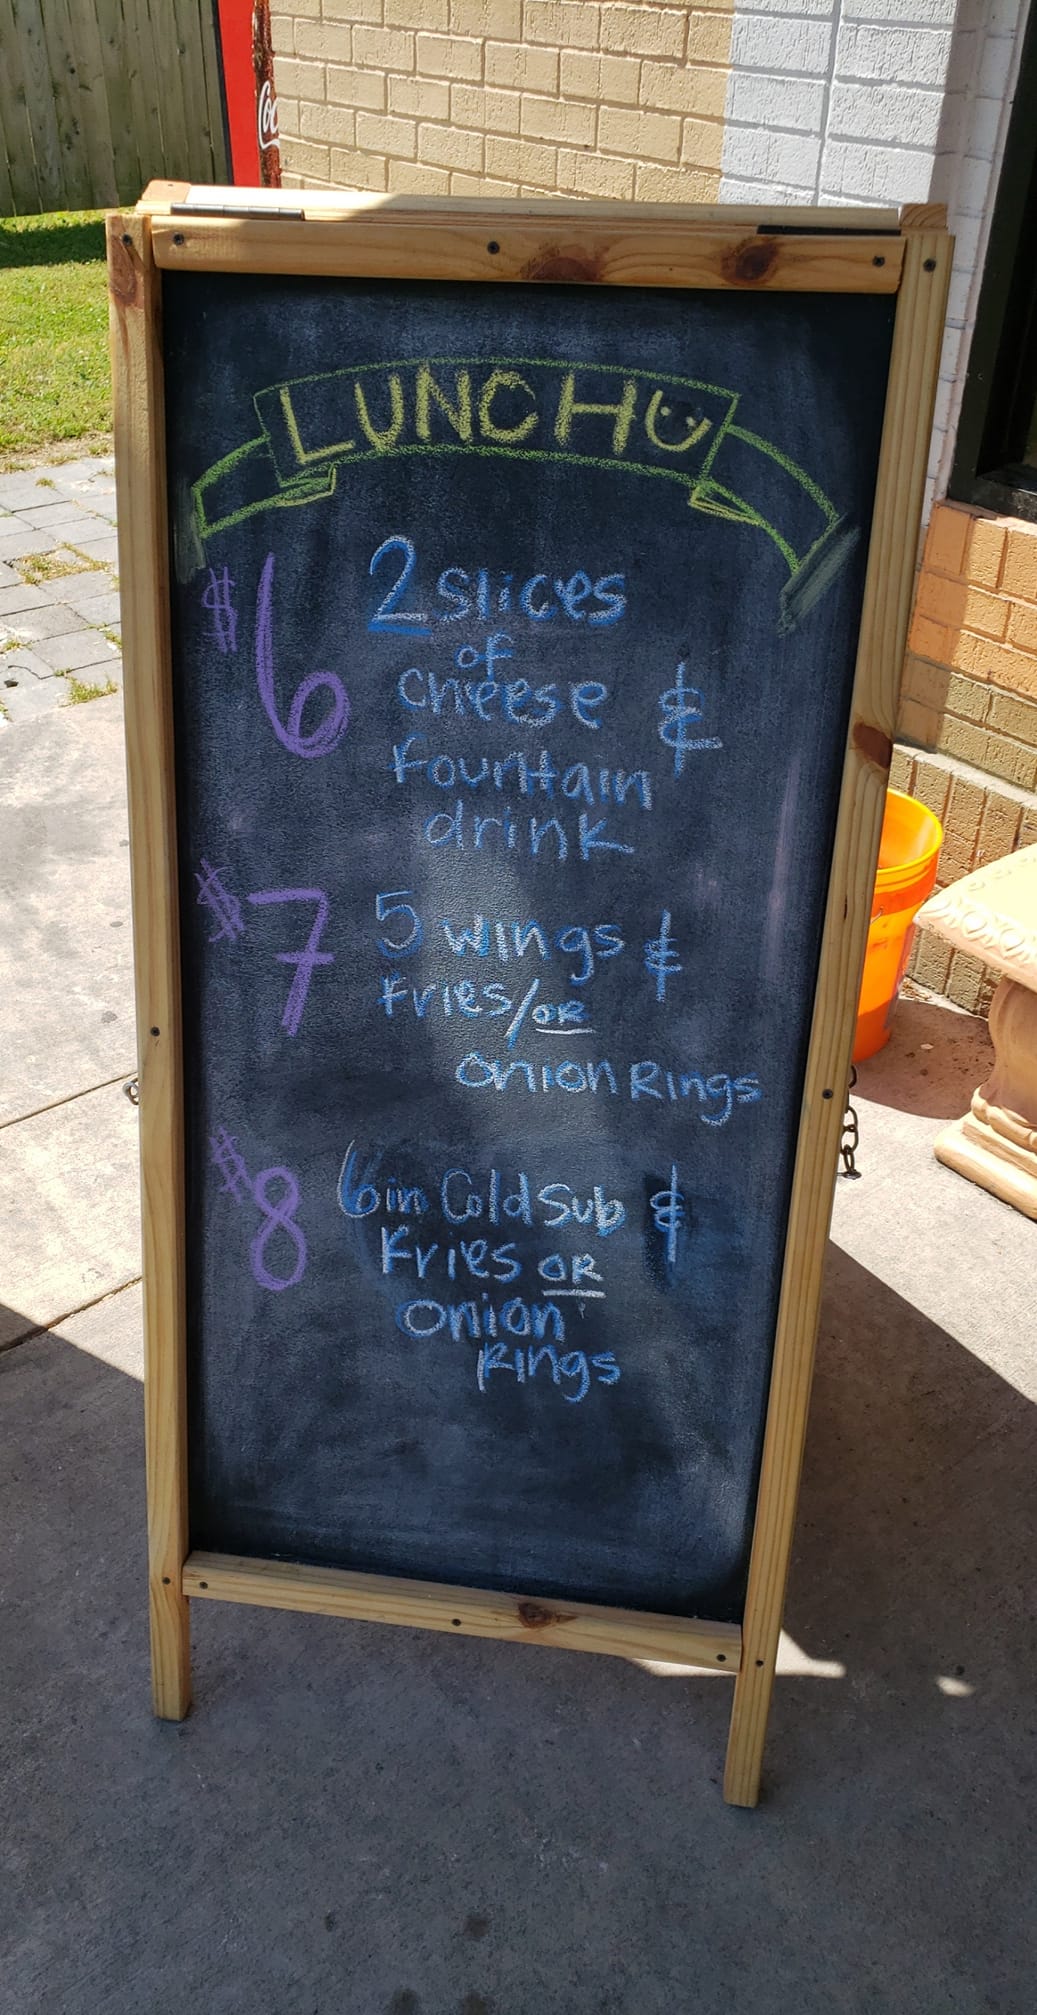 Coc
LUNCH
$6 2 slices
of
cheese &
fountain
drink
$7 5 wings &
Fries/OR
Onion Rings
$8 6in Cold Sub &
Fries OR
Onion
Rings